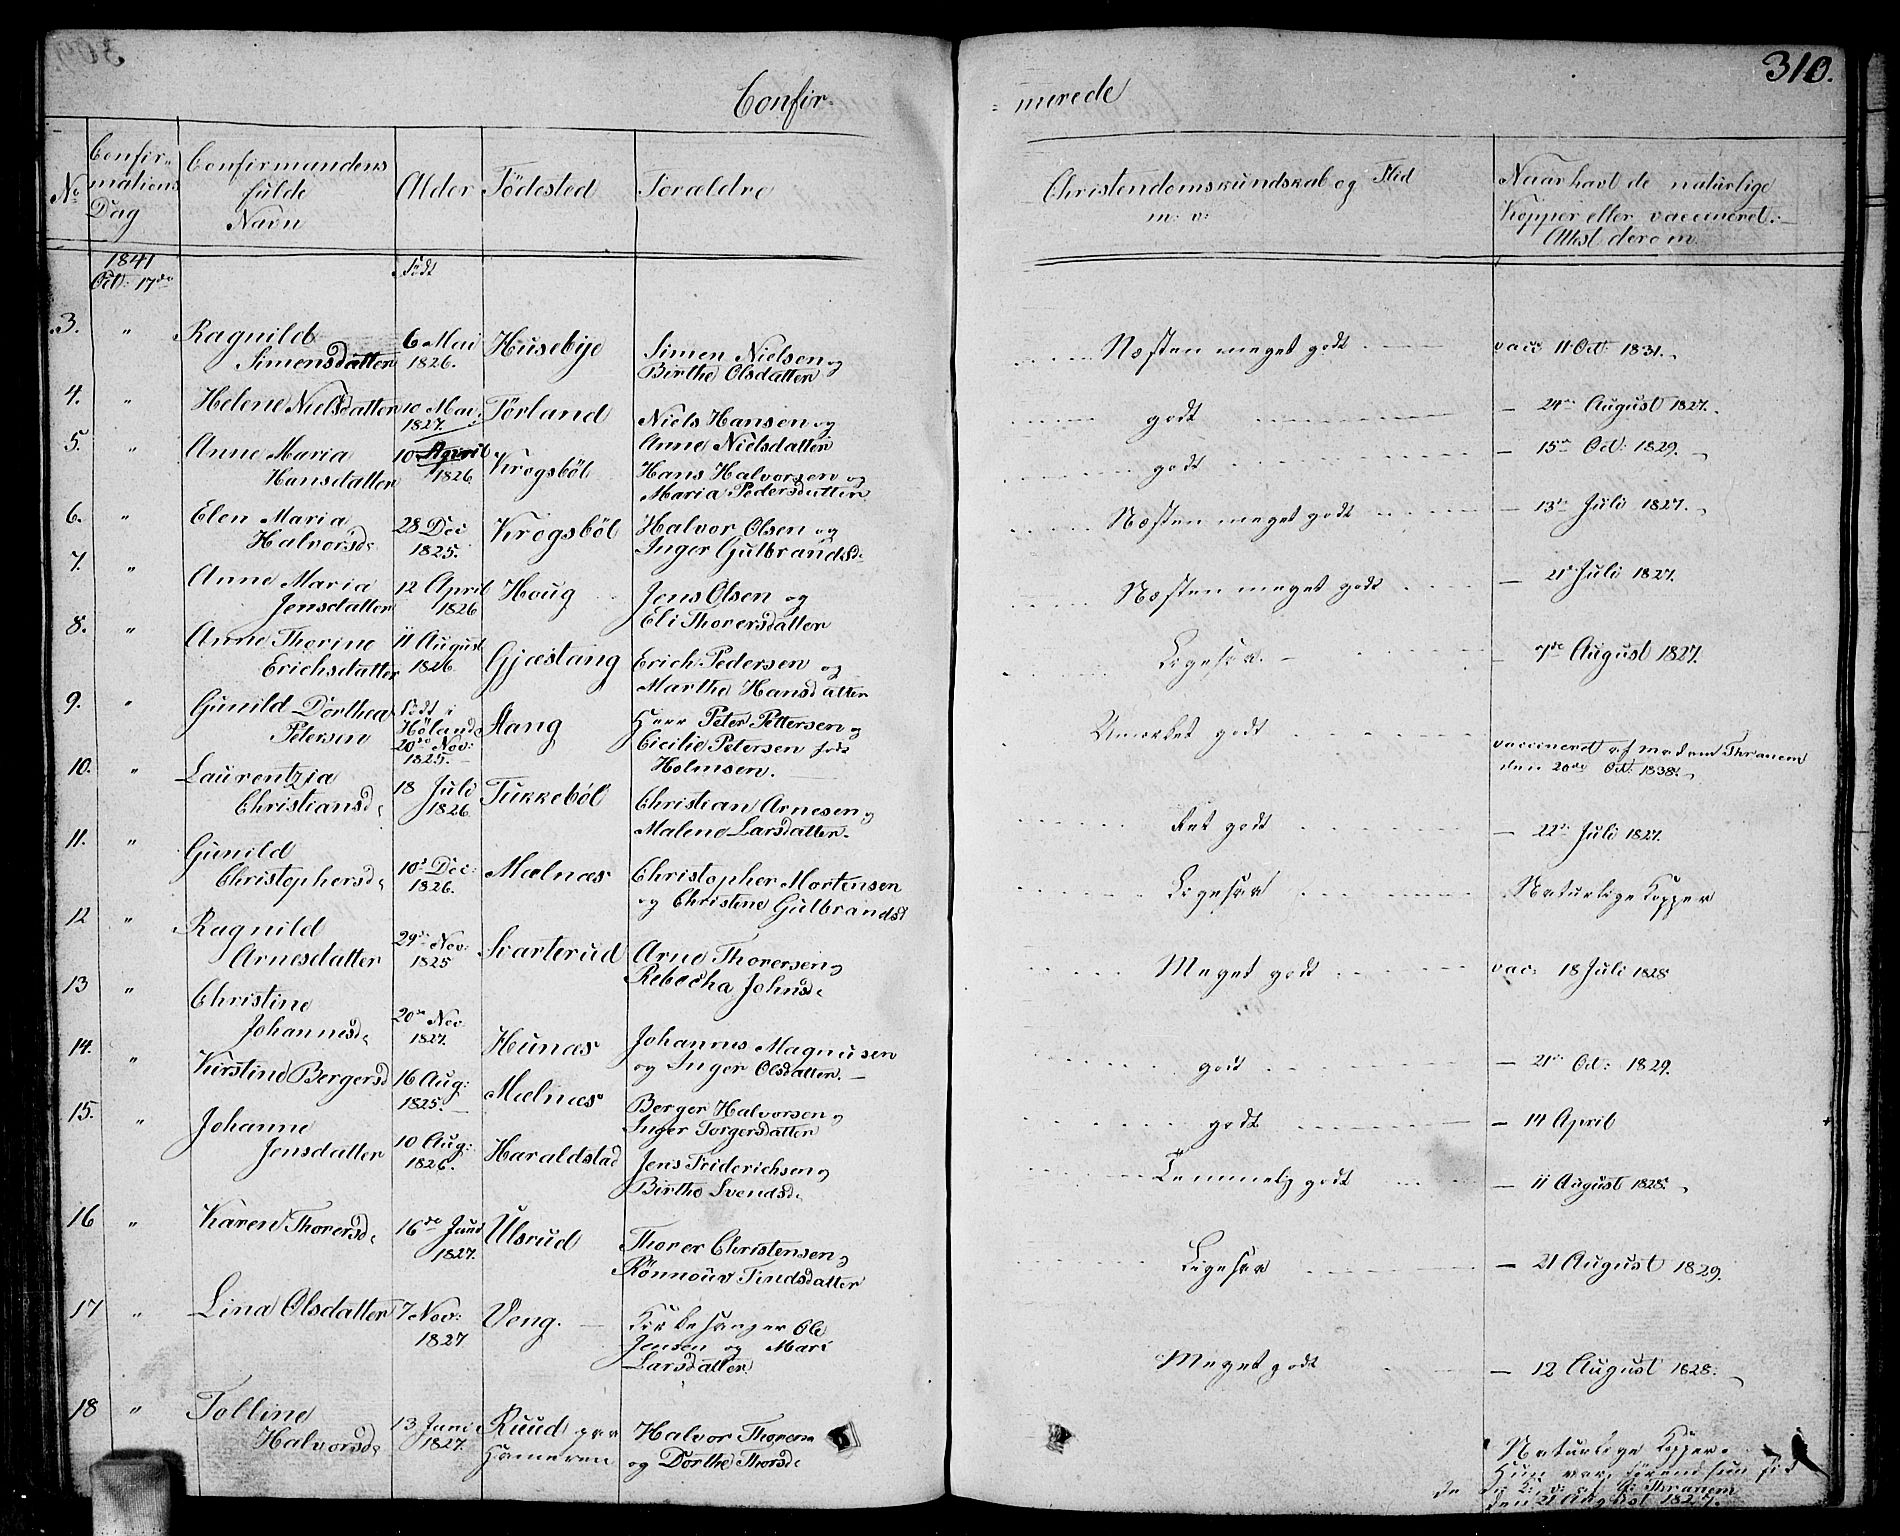 310.
Confir- = merede
No
Confir- mations Dag
Confirmandens fulde Navn
Alder
Födested
Forældre
Christendomskundskab og Flid m: v:
Naar havt de naturlige Kopper eller vaccineret. Attest derom
1841 Oct: 17de
Födt
3. " Ragnild Simensdatter 6 Mai 1826. Husebÿe Simen Nielsen og Birthe Olsdatter Næsten meget godt vacc 11 Oct: 1831.
4. " Helene Nielsdatter 10 Mai 1827. Törland Niels Hansen og Anne Nielsdatter godt — 24de August 1827.
5. " Anne Maria Hansdatter 10 April 1826 Krogsböl Hans Halvorsen og Maria Pedersdatter godt — 15de Oct: 1829.
6. " Elen Maria Halvorsd: 28 Dec 1825. Krogsböl Halvor Olsen og Inger Gulbrandsd: Næsten meget godt — 13de Juli 1827.
7. " Anne Maria Jensdatter 12 April 1826 Houg Jens Olsen og Eli Thorersdatter Næsten meget godt — 21de Juli 1827.
8. " Anne Thorine Erichsdatter 11 August 1826 Gjæstang Erich Pedersen og Marthe Hansdatter Ligesaa — 7de August 1827.
9. " Gunild Dorthea Petersen Födt i Höland 20de Nov: 1825. Stang Herr Peter Pettersen og Cicilie Petersen födt Holmsen. Udmærket godt vaccineret af madam Thranem den 20de Oct: 1838.
10. " Laurentzia Christiansd: 18 Juli 1826 Tukkeböl Christian Arnesen og Malene Larsdatter. Ret godt — 22de Juli 1827.
11. " Gunild Christophersd: 10de Dec: 1826. Mælnæs Christopher Mortensen og Christine Gulbrandsd Ligesaa Naturlige Kopper
12 " Ragnild Arnesdatter 29de Nov: 1825 Svarterud Arne Thorersen og Rebecha Johnsd: Meget godt vac: 18 Juli 1828
13 " Christine Johannesd: 20de Nov: 1827. Hunæs Johannes Magnusen og Inger Olsdatter. godt — 21de Oct: 1829.
14. " Kirstine Bergersd 16 Aug: 1825. Mælnæs Berger Halvorsen og Inger Torgersdatter godt — 14 April
15. " Johanne Jensdatter 10 Aug: 1826. Haraldstad Jens Friderichsen og Birthe Svendsd: Temmelig godt — 11 August 1828.
16 " Karen Thorersd: 16de Juni 1827. Ulsrud Thorer Christensen og Rönnouv Findsdatter Ligesaa — 21 August 1829.
17 " Lina Olsdatter 7 Nov: 1827 Vong. Kirkesanger Ole Jensen og Mari Larsdatter. Meget godt — 12 August 1828.
18 " Talline Halvorsd: 13 Juni 1827. Ruud paa Hammeren Halvor Thoresen og Dorthe Thorsd: Naturlige Kopper.
Hun var
af Thranem
den 21 August 1827.